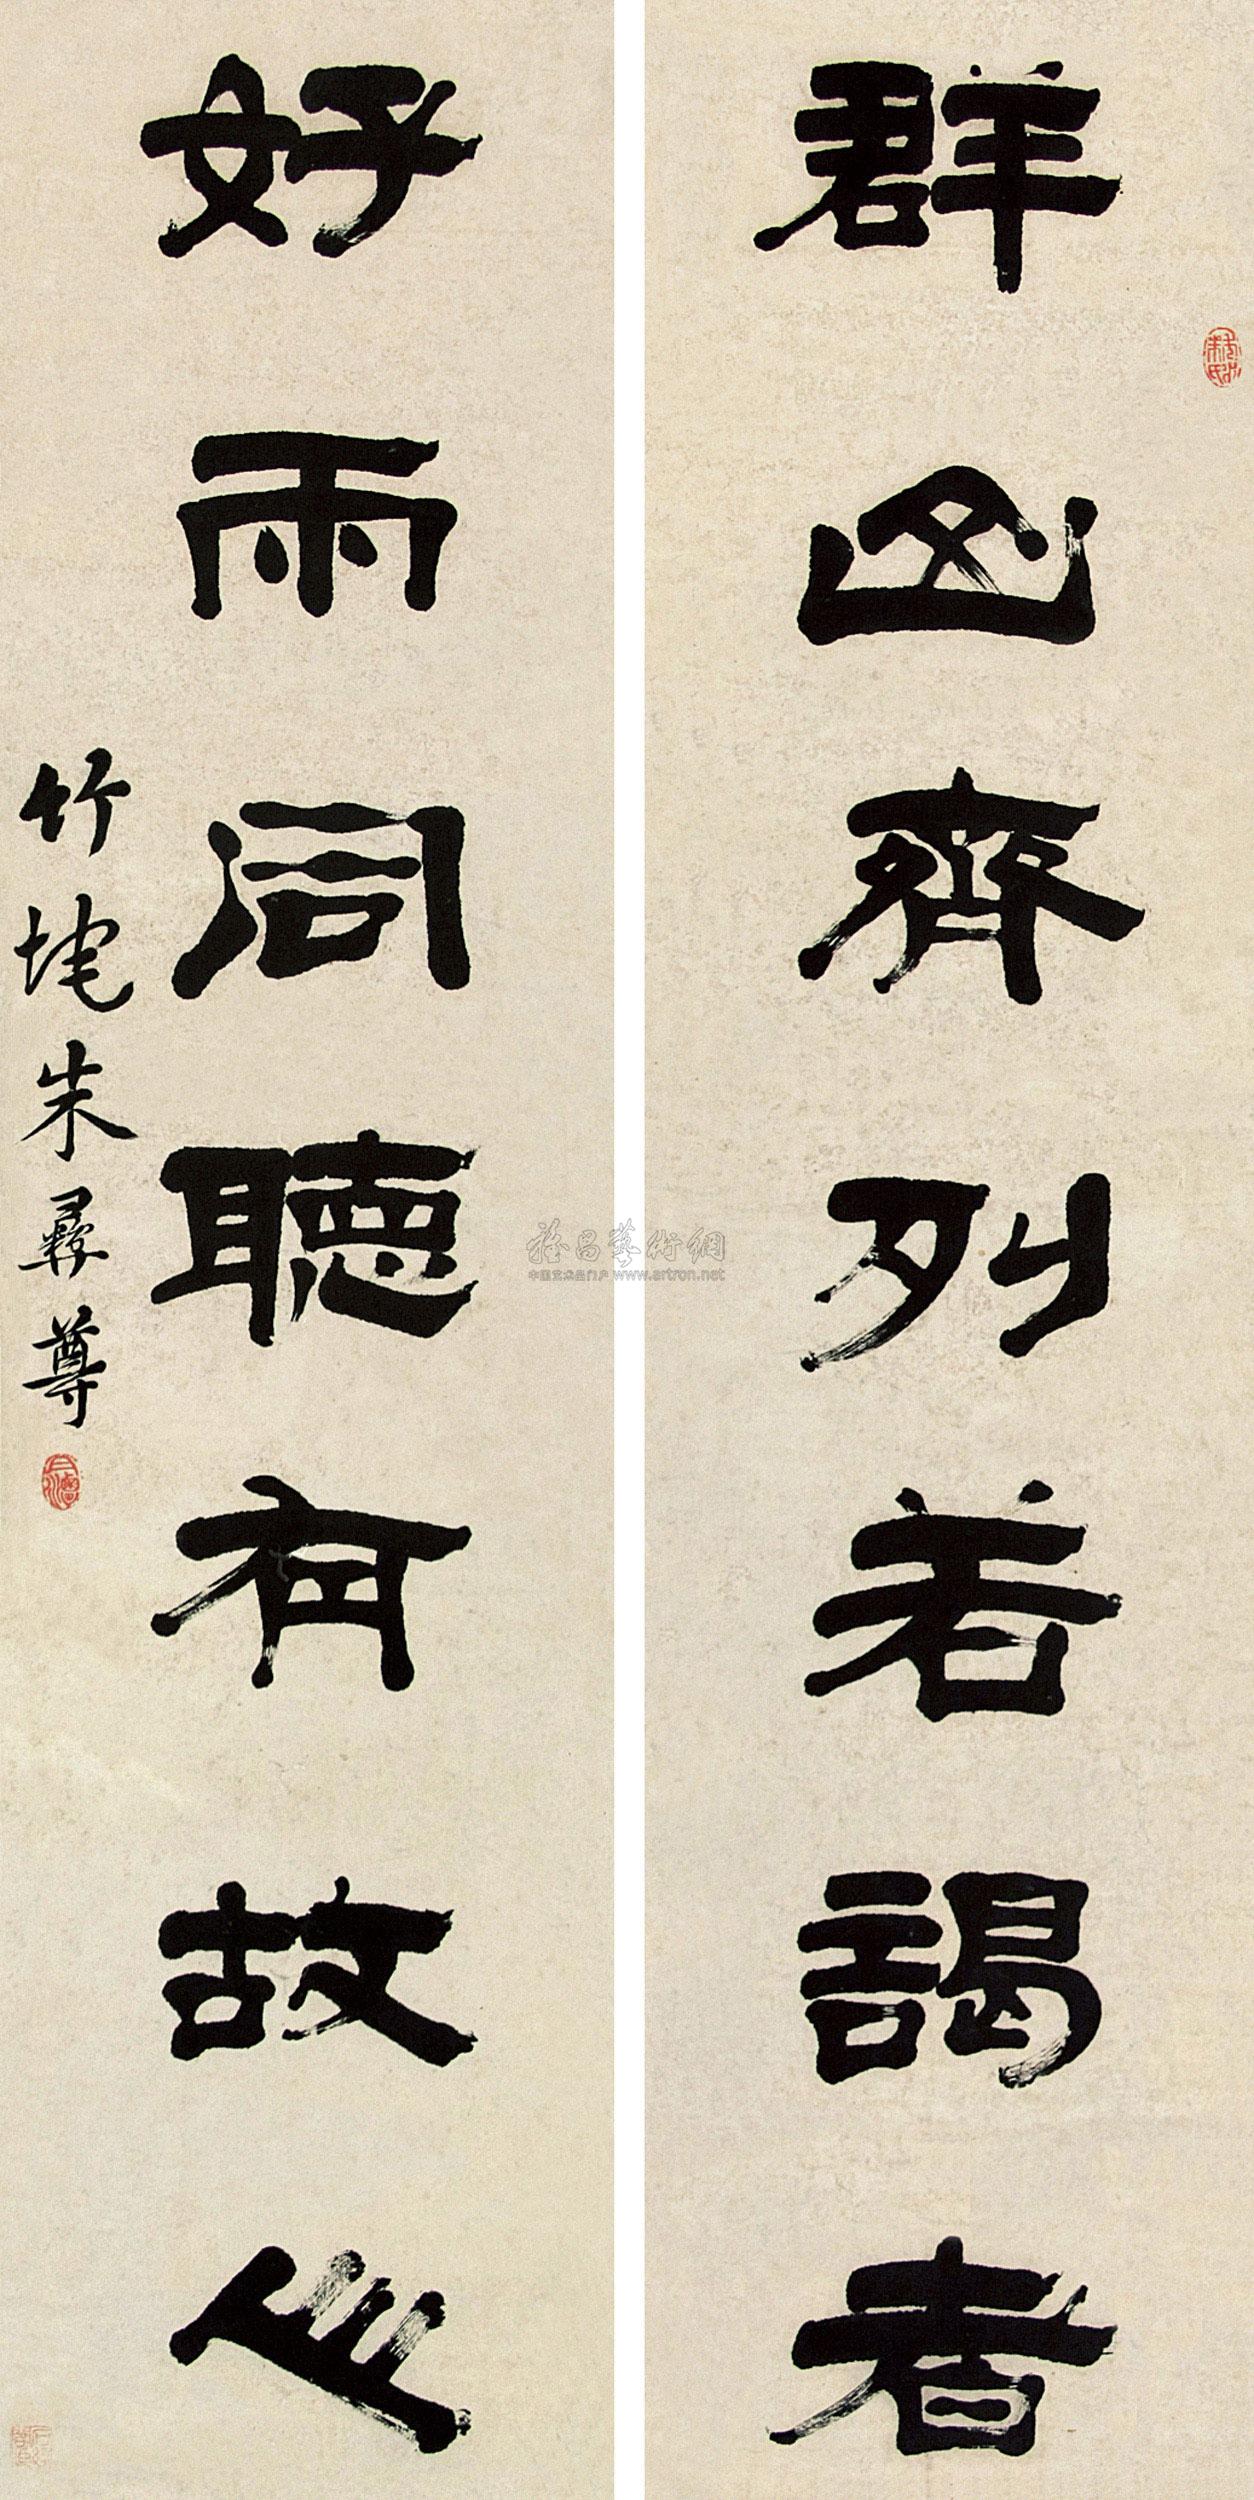 群山齊列若謁者
好雨同聽有故人
竹垞朱彝尊
雅昌藝術網
中国艺术品门户 www.artron.net